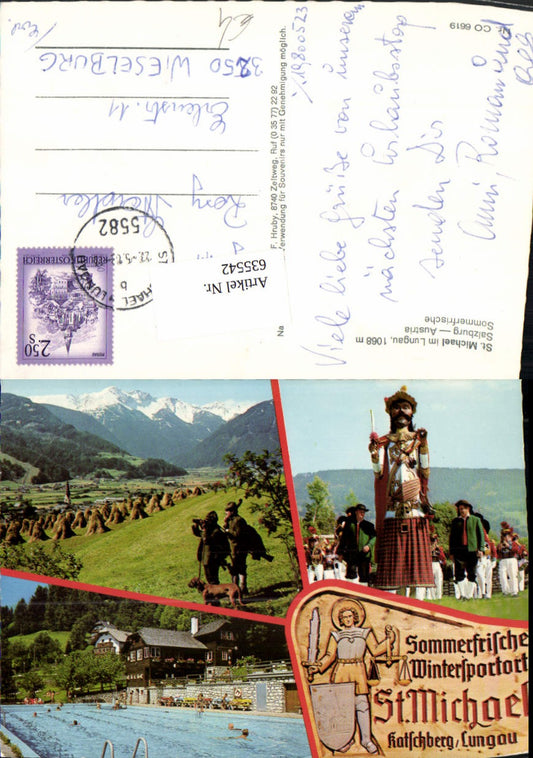 St. Michael im Lungau, 1068 m
Salzburg — Austria
Sommerfrische
CO 6619
Viele liebe Grüße von unserem
nächsten Urlaubsstop
senden Dir
Anni, Roman und
19800523
F. Hruby, 8740 Zeltweg, Ruf (0 35 77) 22 92
Verwendung für Souvenirs nur mit Genehmigung möglich.
Na
Artikel Nr.
635542
REPUBLIK ÖSTERREICH
2.50
S
MURAU
5582
b
Rosy
Erlenstr. 11
3250 WIESELBURG
Sommerfrische
Wintersportort
St. Michael
Katschberg/Lungau